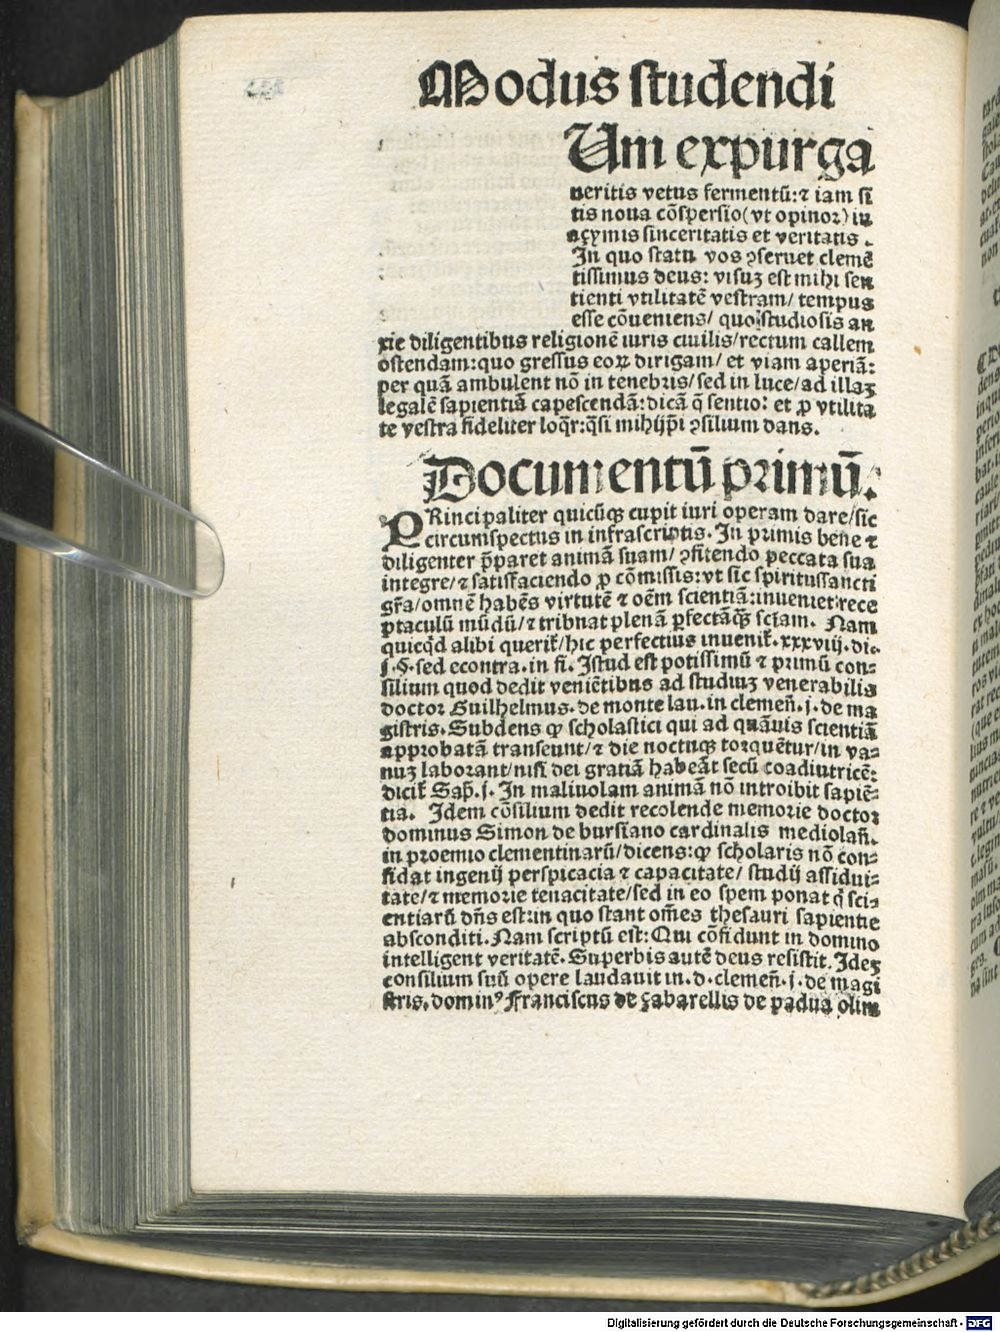 Modus studendi
Um expurga
ueritis vetus fermentū:⁊ iam si
tis noua cōspersio(vt opinoꝛ) in
açymis sinceritatis et veritatis .
In quo statu vos ꝯseruet clemē
tissimus deus: visuꝫ est mihi sen
tienti vtilitatē vestram/ tempus
esse cōueniens/ quo studiosis an
xie diligentibus religionē iuris ciuilis/rectum callem
ostendam:quo gressus eoꝝ dirigam/ et viam aperiā:
per quā ambulent nō in tenebris/sed in luce/ad illaꝫ
legalē sapientiā capescendā:dicā q̄ sentio: et ꝓ vtilita
te vestra fideliter loq̄r:q̄si mihijp̄i ꝯsilium dans.
Documentū primū.
PRincipaliter quicūqꝫ cupit iuri operam dare/sic
circumspectus in infrascriptis. In primis bene ⁊
diligenter p̄paret animā suam/ ꝯfitendo peccata sua
integre/⁊ satisfaciendo ꝓ cōmissis:vt sic spiritussancti
gr̄a/omnē habēs virtutē ⁊ oēm scientiā:inueniet rece
ptaculū mūdū/⁊ tribuat plenā ꝑfectāqꝫ sciam. Nam
quicq̄d alibi querit᷑/hic perfectius inuenit᷑.xxxviij.dic.
j.§.sed econtra.in fi. Istud est potissimū ⁊ primū con⸗
silium quod dedit veniētibus ad studiuꝫ venerabilis
doctor Guilhelmus.de monte lau.in clemen̄.j.de ma
gistris.Subdens ꝙ scholastici qui ad quāuis scientiā
approbatā transeunt/⁊ die noctuqꝫ torquētur/in va⸗
nuꝫ laborant/nisi dei gratiā habeāt secū coadiutricē:
dicit᷑ Sap̄.j. In maliuolam animā nō introibit sapiē⸗
tia. Idem cōsilium dedit recolende memorie doctor
dominus Simon de bursiano cardinalis mediolan̄.
in proemio clementinarū/dicens:ꝙ scholaris nō con⸗
fidat ingenij perspicacia ⁊ capacitate/ studij assidui⸗
tate/⁊ memorie tenacitate/sed in eo spem ponat q̄ sci⸗
entiarū dn̄s est:in quo stant om̄es thesauri sapientie
absconditi.Nam scriptū est:Qui cōfidunt in domino
intelligent veritatē.Superbis autē deus resistit.Ideꝫ
consilium suū opere laudauit in.d.clemen̄.j.de magi
stris.dominꝰ Franciscus de çabarellis de padua olim
Digitalisierung gefördert durch die Deutsche Forschungsgemeinschaft - DFG